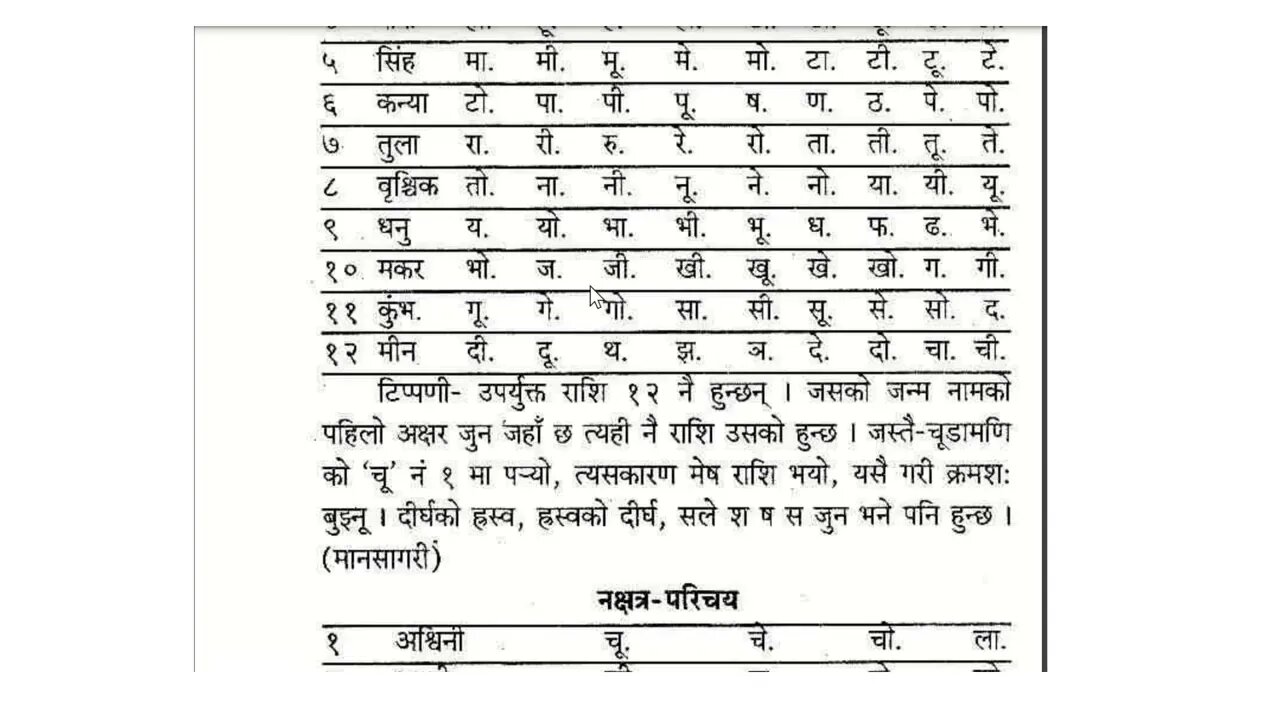 ५ सिंह मा. मी. मू. मे. मो. टा. टी. टू. टे.
६ कन्या टो. पा. पी. पू. ष. ण. ठ. पे. पो.
७ तुला रा. री. रु. रे. रो. ता. ती. तू. ते.
८ वृश्चिक तो. ना. नी. नू. ने. नो. या. यी. यू.
९ धनु य. यो. भा. भी. भू. ध. फ. ढ. भे.
१० मकर भो. ज. जी. खी. खू. खे. खो. ग. गी.
११ कुंभ. गू. गे. गो. सा. सी. सू. से. सो. द.
१२ मीन दी. दू. थ. झ. ञ. दे. दो. चा. ची.
टिप्पणी- उपर्युक्त राशि १२ नै हुन्छन् । जसको जन्म नामको
पहिलो अक्षर जुन जहाँ छ त्यही नै राशि उसको हुन्छ । जस्तै-चूडामणि
को 'चू' नं १ मा पऱ्यो, त्यसकारण मेष राशि भयो, यसै गरी क्रमशः
बुझ्नू । दीर्घको ह्रस्व, ह्रस्वको दीर्घ, सले श ष स जुन भने पनि हुन्छ ।
(मानसागरी)
नक्षत्र-परिचय
१ अश्विनी चू. चे. चो. ला.